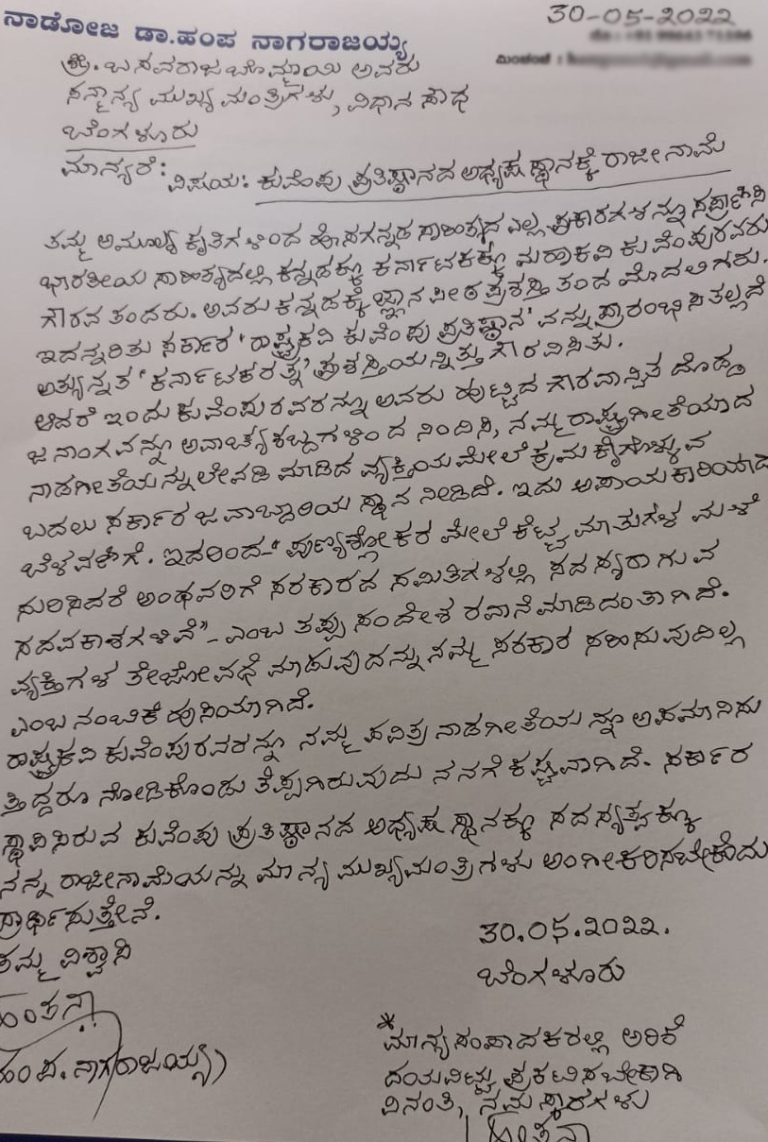 ನಾಡೋಜ ಡಾ.ಹಂಪ ನಾಗರಾಜಯ್ಯ
30-05-೨೦೨೨
ಮಿಂಚಂಚೆ :
ಶ್ರೀ. ಬಸವರಾಜ ಬೊಮ್ಮಾಯಿ ಅವರು
ಸನ್ಮಾನ್ಯ ಮುಖ್ಯ ಮಂತ್ರಿಗಳು, ವಿಧಾನ ಸೌಧ
ಬೆಂಗಳೂರು
ಮಾನ್ಯರೆ:
ವಿಷಯ: ಕುವೆಂಪು ಪ್ರತಿಷ್ಠಾನದ ಅಧ್ಯಕ್ಷ ಸ್ಥಾನಕ್ಕೆ ರಾಜೀನಾಮೆ
ತಮ್ಮ ಅಮೂಲ್ಯ ಕೃತಿಗಳಿಂದ ಹೊಸಗನ್ನಡ ಸಾಹಿತ್ಯದ ಎಲ್ಲ ಪ್ರಕಾರಗಳನ್ನೂ ಸಪ್ರಾಣಿಸಿ
ಭಾರತೀಯ ಸಾಹಿತ್ಯದಲ್ಲಿ ಕನ್ನಡಕ್ಕೂ ಕರ್ನಾಟಕಕ್ಕೂ ಮಹಾಕವಿ ಕುವೆಂಪುರವರು
ಗೌರವ ತಂದರು. ಅವರು ಕನ್ನಡಕ್ಕೆ ಜ್ಞಾನಪೀಠ ಪ್ರಶಸ್ತಿ ತಂದ ಮೊದಲಿಗರು.
ಇದನ್ನರಿತು ಸರ್ಕಾರ 'ರಾಷ್ಟ್ರಕವಿ ಕುವೆಂಪು ಪ್ರತಿಷ್ಠಾನ'ವನ್ನು ಪ್ರಾರಂಭಿಸಿತಲ್ಲದೆ
ಅತ್ಯುನ್ನತ 'ಕರ್ನಾಟಕರತ್ನ' ಪ್ರಶಸ್ತಿಯನ್ನಿತ್ತು ಗೌರವಿಸಿತು.
ಆದರೆ ಇಂದು ಕುವೆಂಪುರವರನ್ನೂ ಅವರು ಹುಟ್ಟಿದ ಗೌರವಾನ್ವಿತ ದೊಡ್ಡ
ಜನಾಂಗವನ್ನೂ ಅವಾಚ್ಯಶಬ್ದಗಳಿಂದ ನಿಂದಿಸಿ, ನಮ್ಮ ರಾಷ್ಟ್ರಗೀತೆಯಾದ
ನಾಡಗೀತೆಯನ್ನು ಲೇವಡಿ ಮಾಡಿದ ವ್ಯಕ್ತಿಯ ಮೇಲೆ ಕ್ರಮ ಕೈಗೊಳ್ಳುವ
ಬದಲು ಸರ್ಕಾರ ಜವಾಬ್ದಾರಿಯ ಸ್ಥಾನ ನೀಡಿದೆ. ಇದು ಅಪಾಯಕಾರಿಯಾದ
ಬೆಳವಣಿಗೆ. ಇದರಿಂದ-"ಪುಣ್ಯಶ್ಲೋಕರ ಮೇಲೆ ಕೆಟ್ಟ ಮಾತುಗಳ ಮಳೆ
ಸುರಿಸಿದರೆ ಅಂಥವರಿಗೆ ಸರಕಾರದ ಸಮಿತಿಗಳಲ್ಲಿ ಸದಸ್ಯರಾಗುವ
ಸದವಕಾಶಗಳಿವೆ"-ಎಂಬ ತಪ್ಪು ಸಂದೇಶ ರವಾನೆ ಮಾಡಿದಂತಾಗಿದೆ.
ವ್ಯಕ್ತಿಗಳ ತೇಜೋವಧೆ ಮಾಡುವುದನ್ನು ನಮ್ಮ ಸರಕಾರ ಸಹಿಸುವುದಿಲ್ಲ
ಎಂಬ ನಂಬಿಕೆ ಹುಸಿಯಾಗಿದೆ.
ರಾಷ್ಟ್ರಕವಿ ಕುವೆಂಪುರವರನ್ನೂ ನಮ್ಮ ಪವಿತ್ರ ನಾಡಗೀತೆಯನ್ನೂ ಅಪಮಾನಿಸು
ತ್ತಿದ್ದರೂ ನೋಡಿಕೊಂಡು ತೆಪ್ಪಗಿರುವುದು ನನಗೆ ಕಷ್ಟವಾಗಿದೆ. ಸರ್ಕಾರ
ಸ್ಥಾಪಿಸಿರುವ ಕುವೆಂಪು ಪ್ರತಿಷ್ಠಾನದ ಅಧ್ಯಕ್ಷ ಸ್ಥಾನಕ್ಕೂ ಸದಸ್ಯತ್ವಕ್ಕೂ
ನನ್ನ ರಾಜೀನಾಮೆಯನ್ನು ಮಾನ್ಯ ಮುಖ್ಯಮಂತ್ರಿಗಳು ಅಂಗೀಕರಿಸಬೇಕೆಂದು
ಪ್ರಾರ್ಥಿಸುತ್ತೇನೆ.
ತಮ್ಮ ವಿಶ್ವಾಸಿ
ಹಂಪನಾ
ಹಂಪ. ನಾಗರಾಜಯ್ಯ)
30.05.೨೦೨೨.
ಬೆಂಗಳೂರು
*ಮಾನ್ಯಸಂಪಾದಕರಲ್ಲಿ ಅರಿಕೆ
ದಯವಿಟ್ಟು ಪ್ರಕಟಿಸಬೇಕಾಗಿ
ವಿನಂತಿ, ನಮಸ್ಕಾರಗಳು
ಹಂಪನಾ